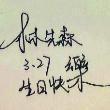 林先森
3.27
生日快樂